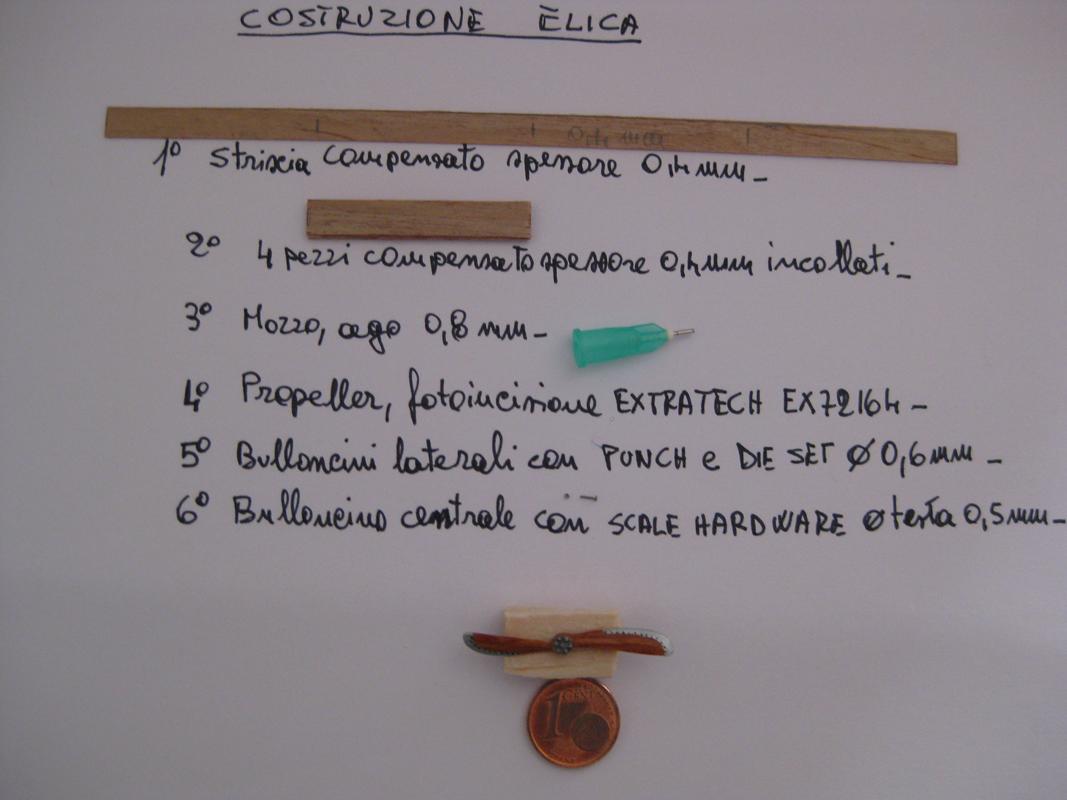 COSTRUZIONE ELICA
0,4 mm
1° Striscia compensato spessore 0,4 mm_
2° 4 pezzi compensato spessore 0,4 mm incollati_
3° Mozzo, ago 0,8 mm_
4° Propeller, fotoincisione EXTRATECH EX72164_
5° Bulloncini laterali con PUNCH e DIE SET Ø 0,6 mm_
6° Bulloncino centrale con SCALE HARDWARE Ø testa 0,5 mm_
1